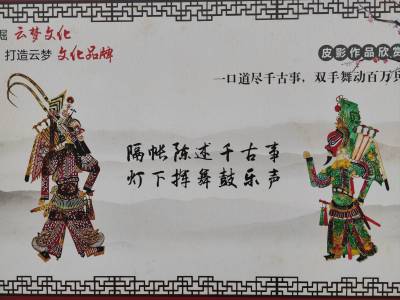 掘 云梦文化
打造云梦 文化品牌
皮影作品欣赏
一口道尽千古事，双手舞动百万兵
隔帐陈述千古事
灯下挥舞鼓乐声